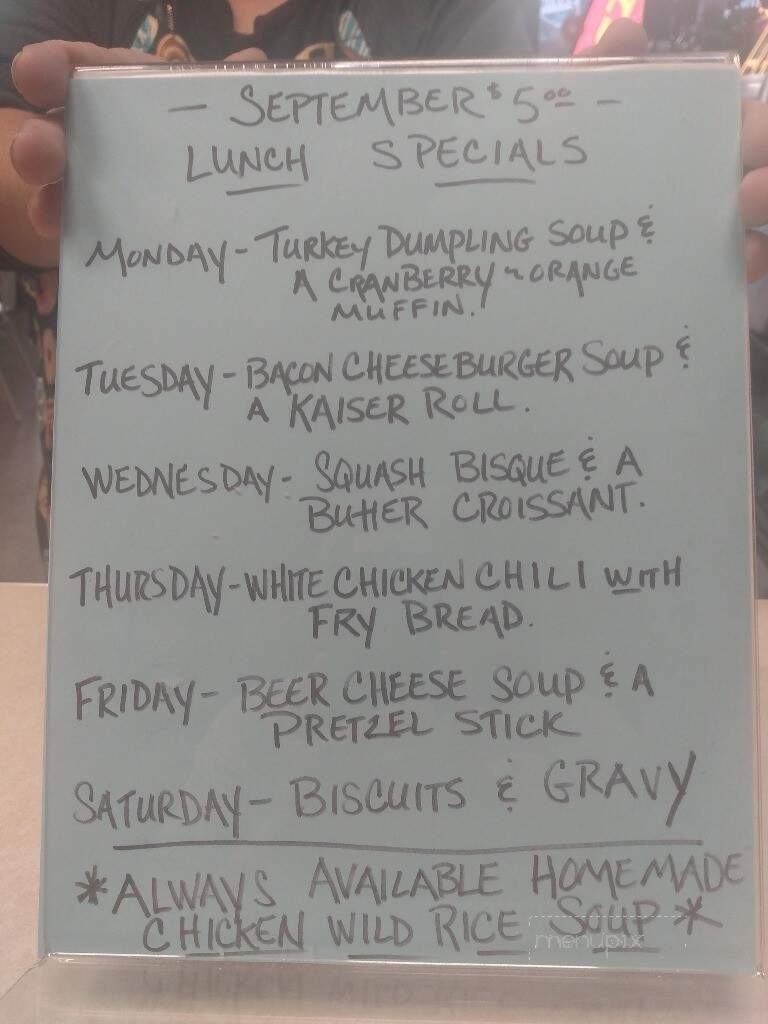 — SEPTEMBER $5.00 —
LUNCH SPECIALS
MONDAY - TURKEY DUMPLING SOUP &
A CRANBERRY ~ ORANGE
MUFFIN.
TUESDAY - BACON CHEESEBURGER SOUP &
A KAISER ROLL.
WEDNESDAY - SQUASH BISQUE & A
BUTTER CROISSANT.
THURSDAY - WHITE CHICKEN CHILI WITH
FRY BREAD.
FRIDAY - BEER CHEESE SOUP & A
PRETZEL STICK
SATURDAY - BISCUITS & GRAVY
*ALWAYS AVAILABLE HOMEMADE
CHICKEN WILD RICE SOUP*
menupix